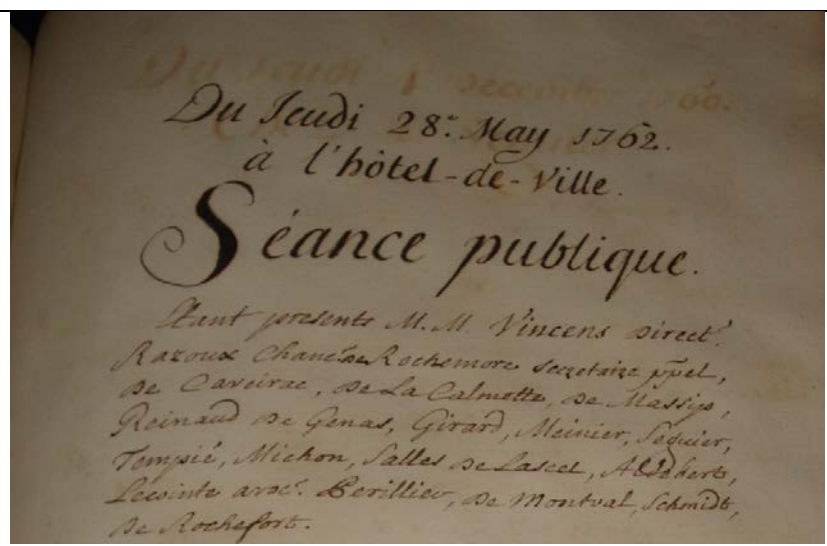 Du Jeudi 28.e May 1762.
à l'hôtel-de-Ville.
Séance publique.
Etant presents M.M. Vincens Direct.r
Razoux Chanc.r de Rochemore secretaire ppel,
de Caveirac, de La Calmette, de Massip,
Reinaud de Genas, Girard, Meinier, Seguier,
Tempié, Michon, Salles de Lascel, Aldebert,
Lecointe avoc.t Perillier, de Montval, Schmidt,
de Rochefort.